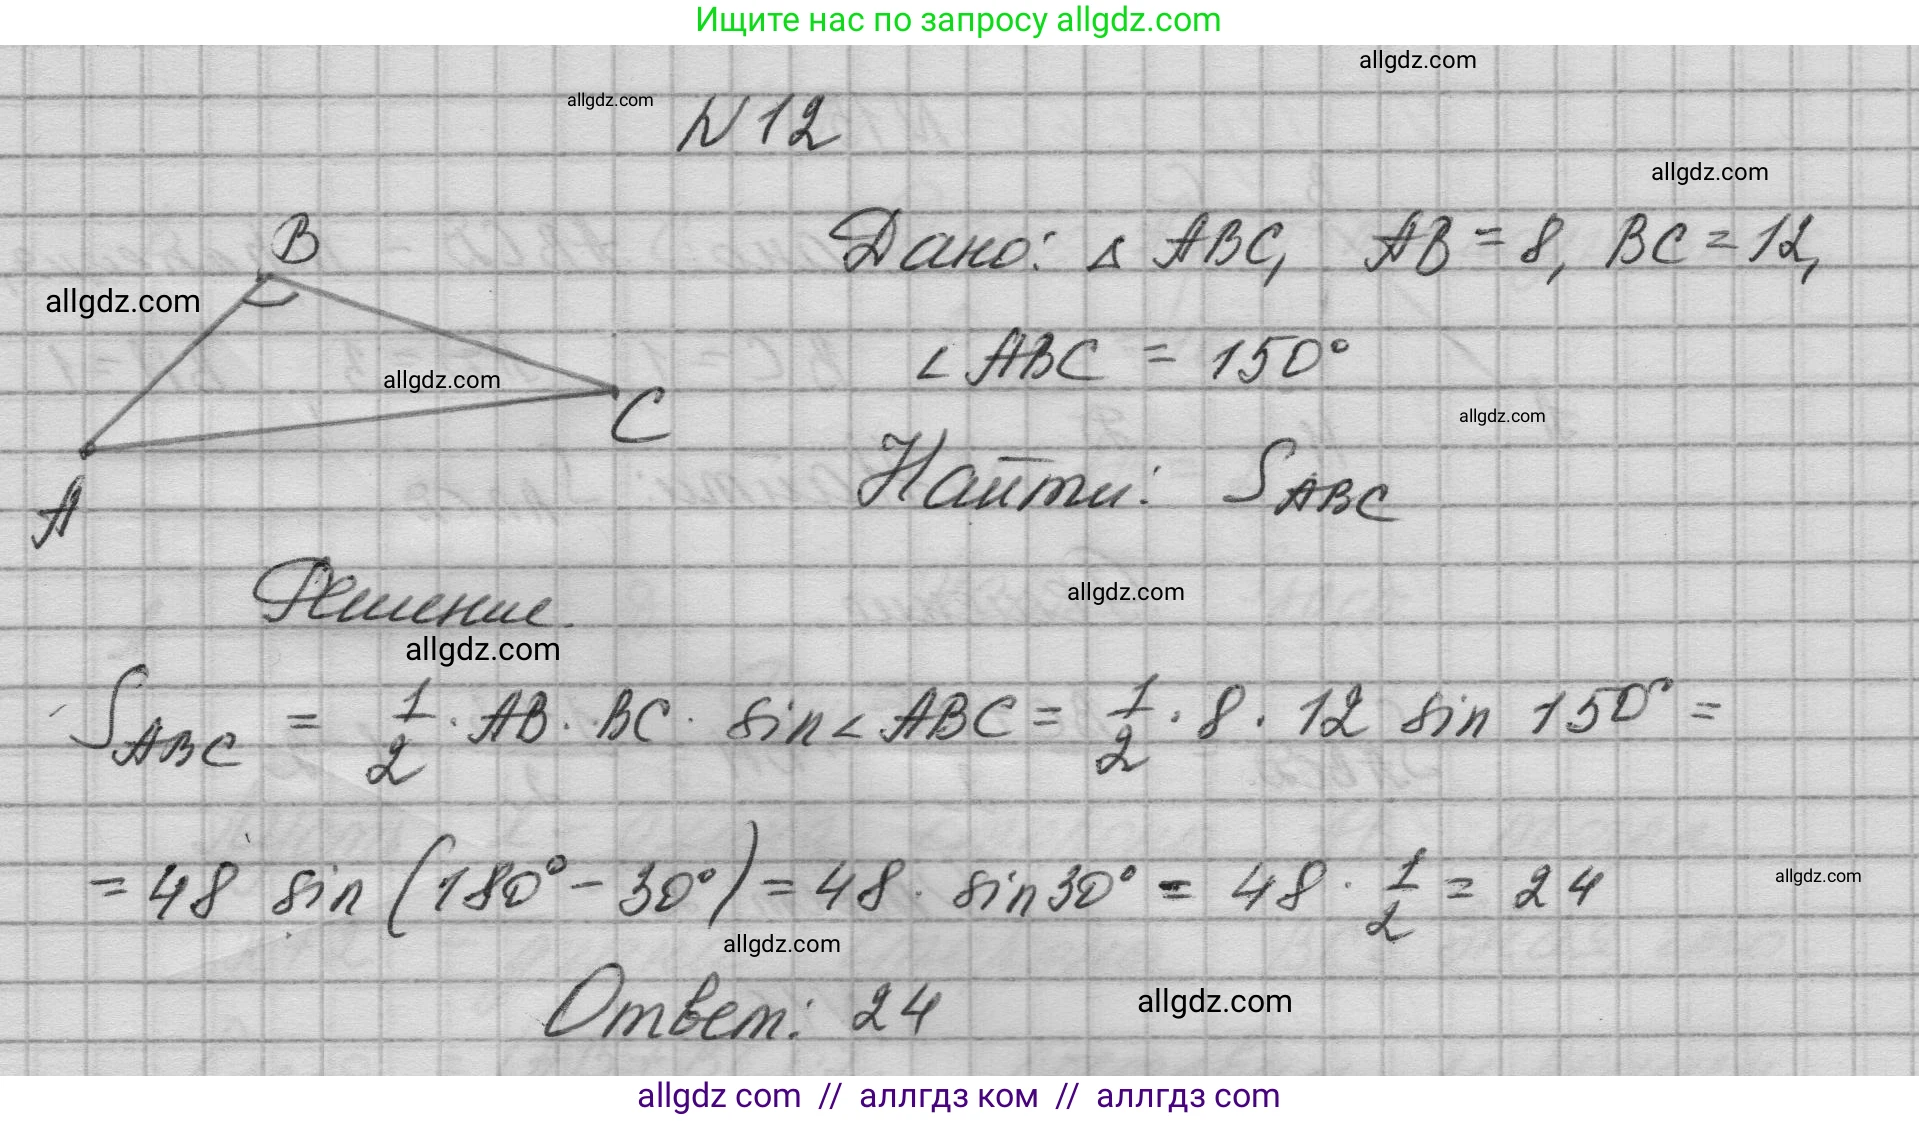 Ищите нас по запросу allgdz.com
allgdz.com
allgdz.com
N 12
allgdz.com
B
Дано: △ ABC, AB = 8, BC = 12,
allgdz.com
∠ ABC = 150°
allgdz.com
allgdz.com
C
Найти: S ABC
A
Решение.
allgdz.com
allgdz.com
S ABC = 1/2 · AB · BC · sin ∠ ABC = 1/2 · 8 · 12 sin 150° =
= 48 sin (180° - 30°) = 48 · sin 30° = 48 · 1/2 = 24
allgdz.com
allgdz.com
Ответ: 24
allgdz.com
allgdz com // аллгдз ком // аллгдз com